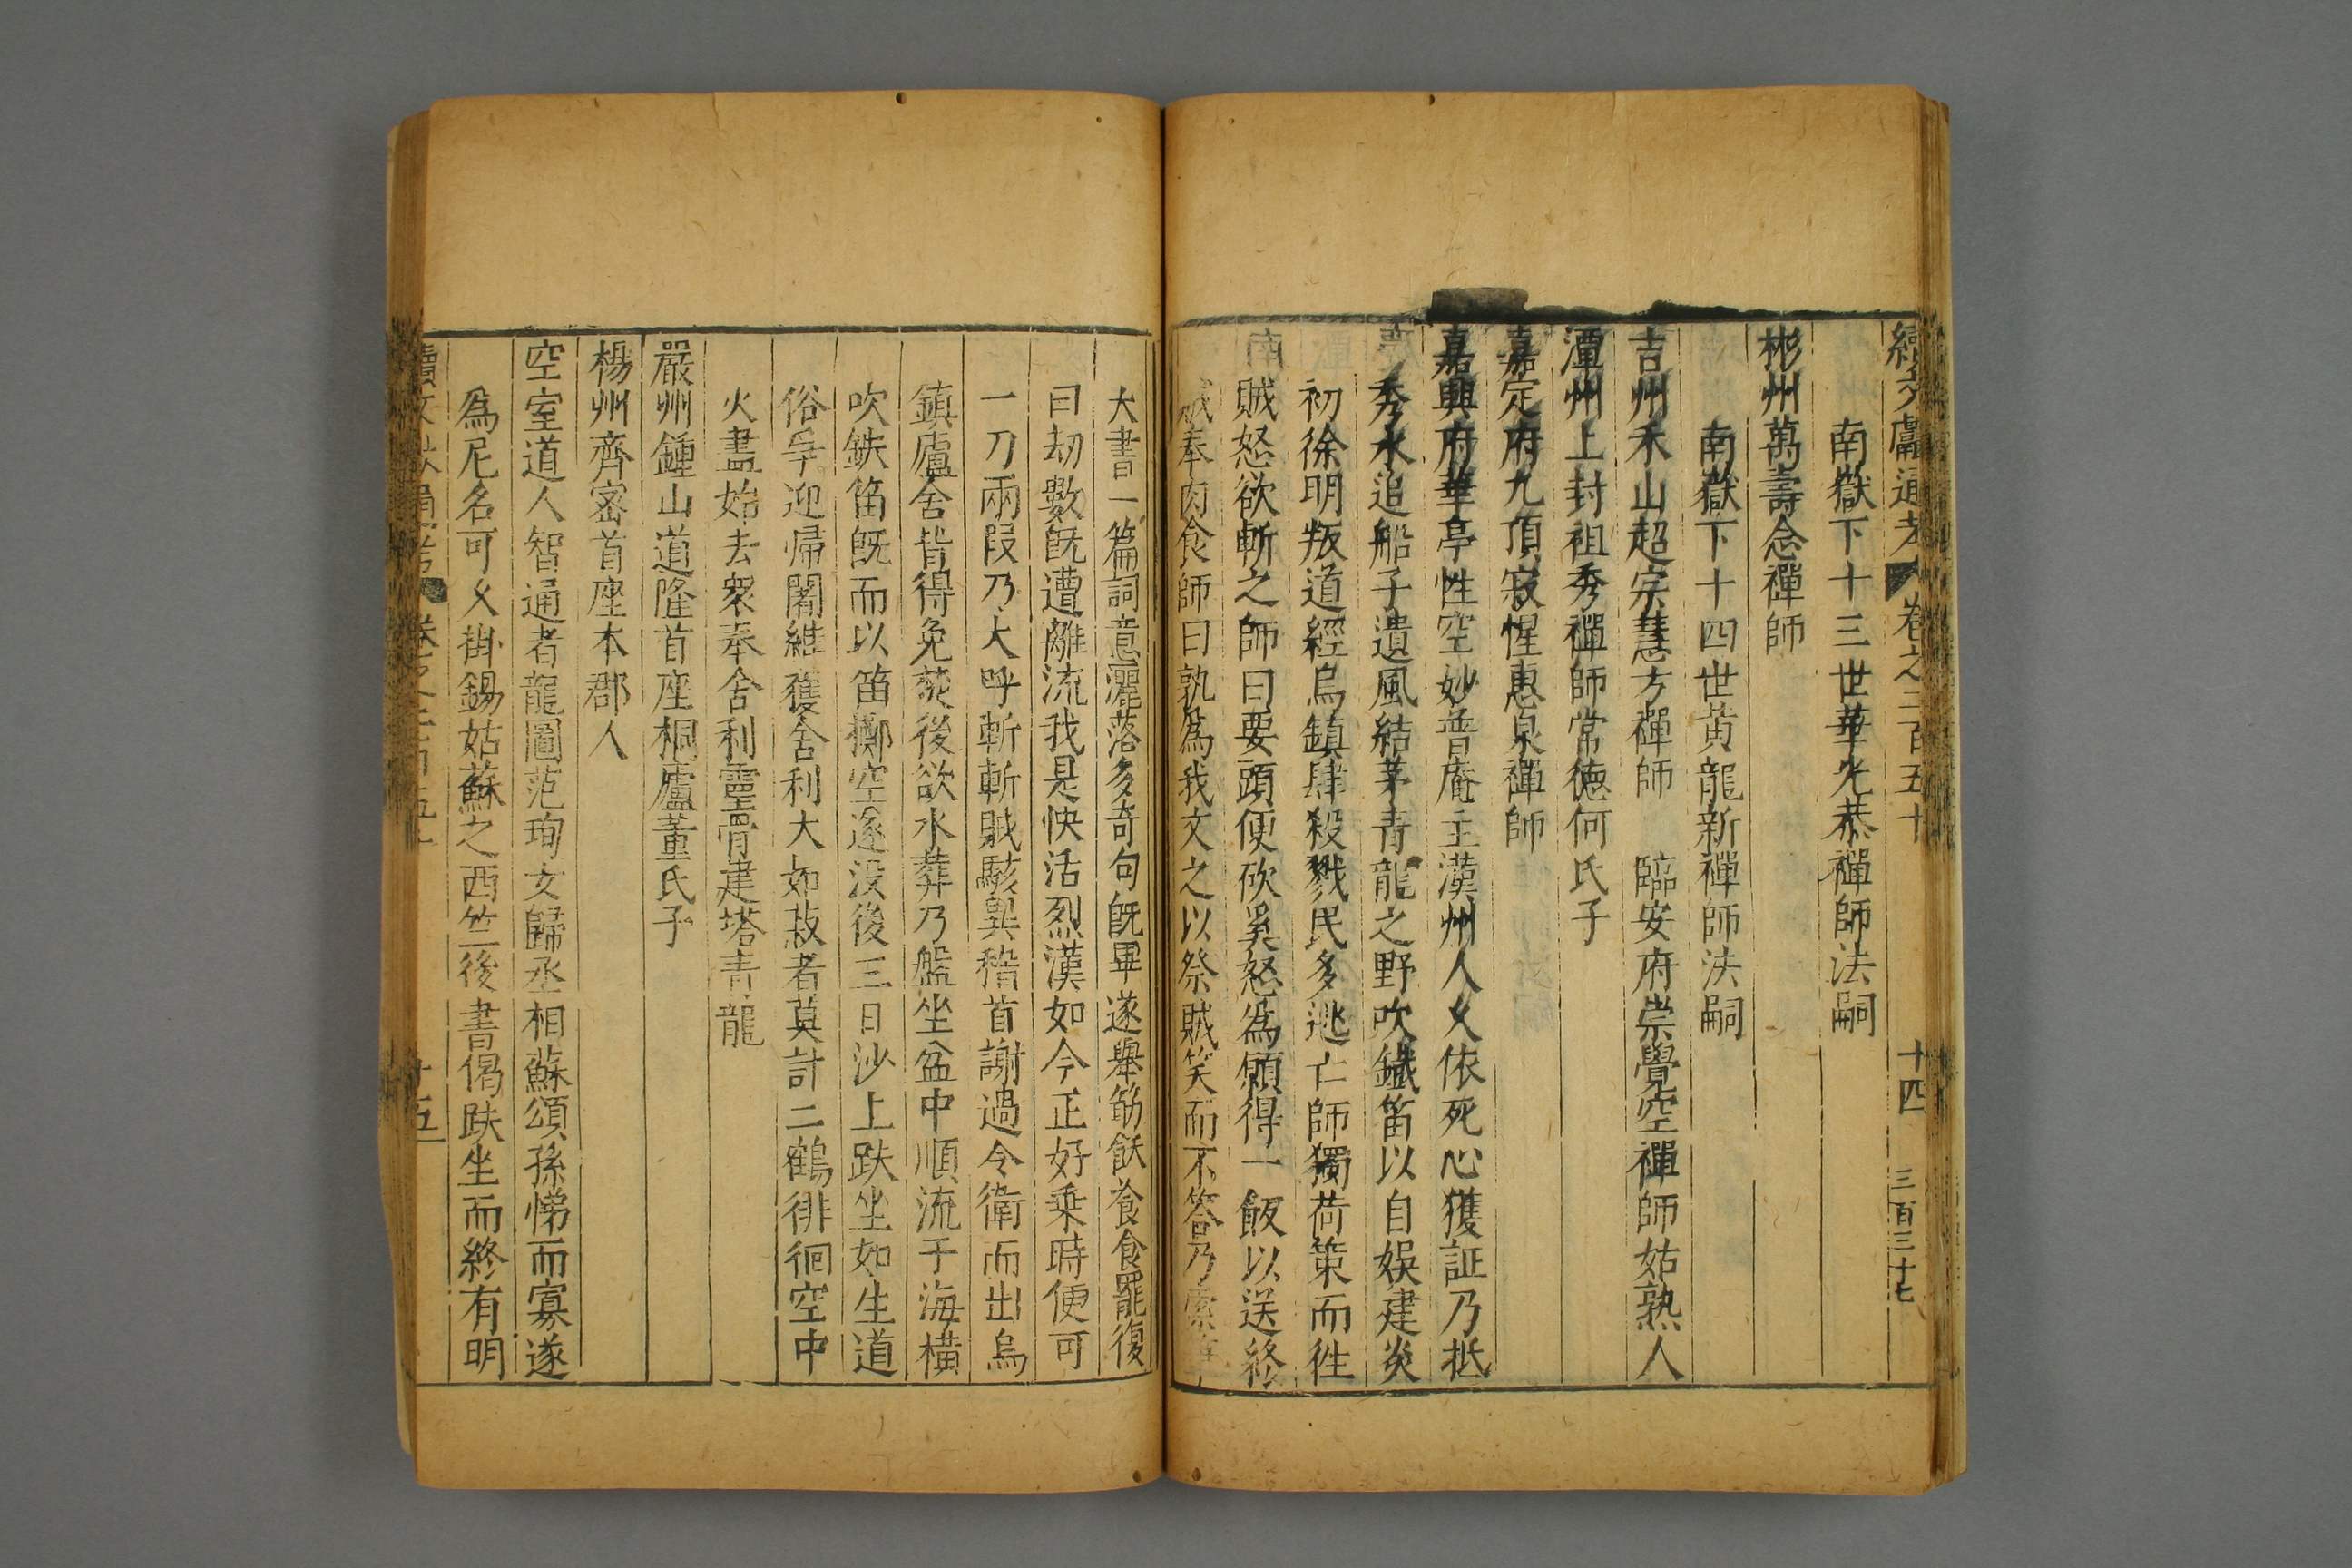 續文獻通考 卷之二百五十 十四 三百三十七
南嶽下十三世華光恭禪師法嗣
彬州萬壽念禪師
南嶽下十四世黃龍新禪師法嗣
吉州禾山超宗慧方禪師 臨安府崇覺空禪師姑熟人
潭州上封祖秀禪師常德何氏子
嘉定府九頂寂惺惠泉禪師
嘉興府華亭性空妙普庵主漢州人乆依死心獲証乃抵
秀水追船子遺風結茅青龍之野吹鐵笛以自娛建炎
初徐明叛道經烏鎮肆殺戮民多逃亡師獨荷策而徃
賊怒欲斬之師曰要頭便砍奚怒為願得一飯以送終
賊奉肉食師曰孰為我文之以祭賊笑而不答乃索筆
大書一篇詞意灑落多奇句旣畢遂舉筯飫飡食罷復
曰刼數旣遭離流我是快活烈漢如今正好乗時便可
一刀兩叚乃大呼斬斬賊駭異稽首謝過令衛而出烏
鎮廬舍皆得免焚後欲水葬乃盤坐盆中順流于海橫
吹鉄笛旣而以笛擲空遂没後三日沙上趺坐如生道
俗爭迎帰闍維獲舍利大如菽者莫計二鶴徘徊空中
火盡始去衆奉舍利靈骨建塔青龍
嚴州鍾山道隆首座桐廬董氏子
楊州齊宻首座本郡人
空室道人智通者龍圖范珣女歸丞相蘇頌孫悌而寡遂
為尼名可乆掛錫姑蘇之西竺後書偈趺坐而終有明
續文獻通考 卷之二百五十 十五